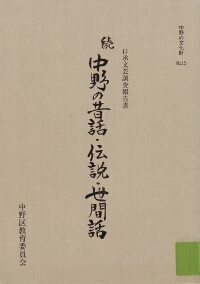 中野の文化財
№15
口承文芸調査報告書
続
中野の昔話・伝説・世間話
中野区教育委員会